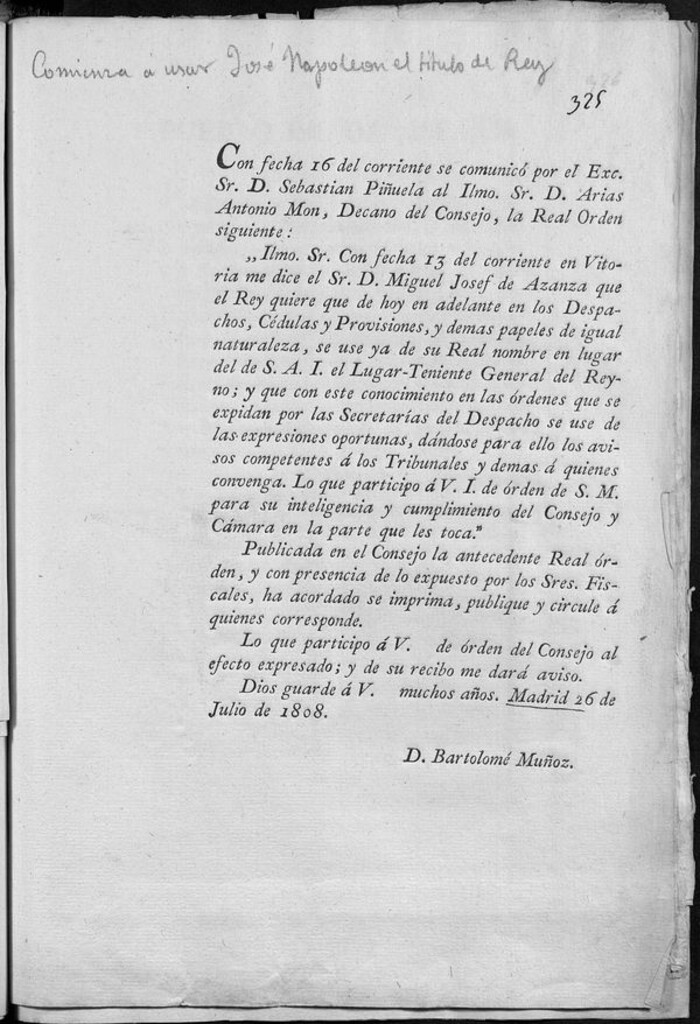 Comienza á usar José Napoleon el título de Rey
325
Con fecha 16 del corriente se comunicó por el Exc.
Sr. D. Sebastian Piñuela al Ilmo. Sr. D. Arias
Antonio Mon, Decano del Consejo, la Real Orden
siguiente:
„Ilmo. Sr. Con fecha 13 del corriente en Vito-
ria me dice el Sr. D. Miguel Josef de Azanza que
el Rey quiere que de hoy en adelante en los Despa-
chos, Cédulas y Provisiones, y demas papeles de igual
naturaleza, se use ya de su Real nombre en lugar
del de S. A. I. el Lugar-Teniente General del Rey-
no; y que con este conocimiento en las órdenes que se
expidan por las Secretarías del Despacho se use de
las expresiones oportunas, dándose para ello los avi-
sos competentes á los Tribunales y demas á quienes
convenga. Lo que participo á V. I. de órden de S. M.
para su inteligencia y cumplimiento del Consejo y
Cámara en la parte que les toca."
Publicada en el Consejo la antecedente Real ór-
den, y con presencia de lo expuesto por los Sres. Fis-
cales, ha acordado se imprima, publique y circule á
quienes corresponde.
Lo que participo á V. de órden del Consejo al
efecto expresado; y de su recibo me dará aviso.
Dios guarde á V. muchos años. Madrid 26 de
Julio de 1808.
D. Bartolomé Muñoz.